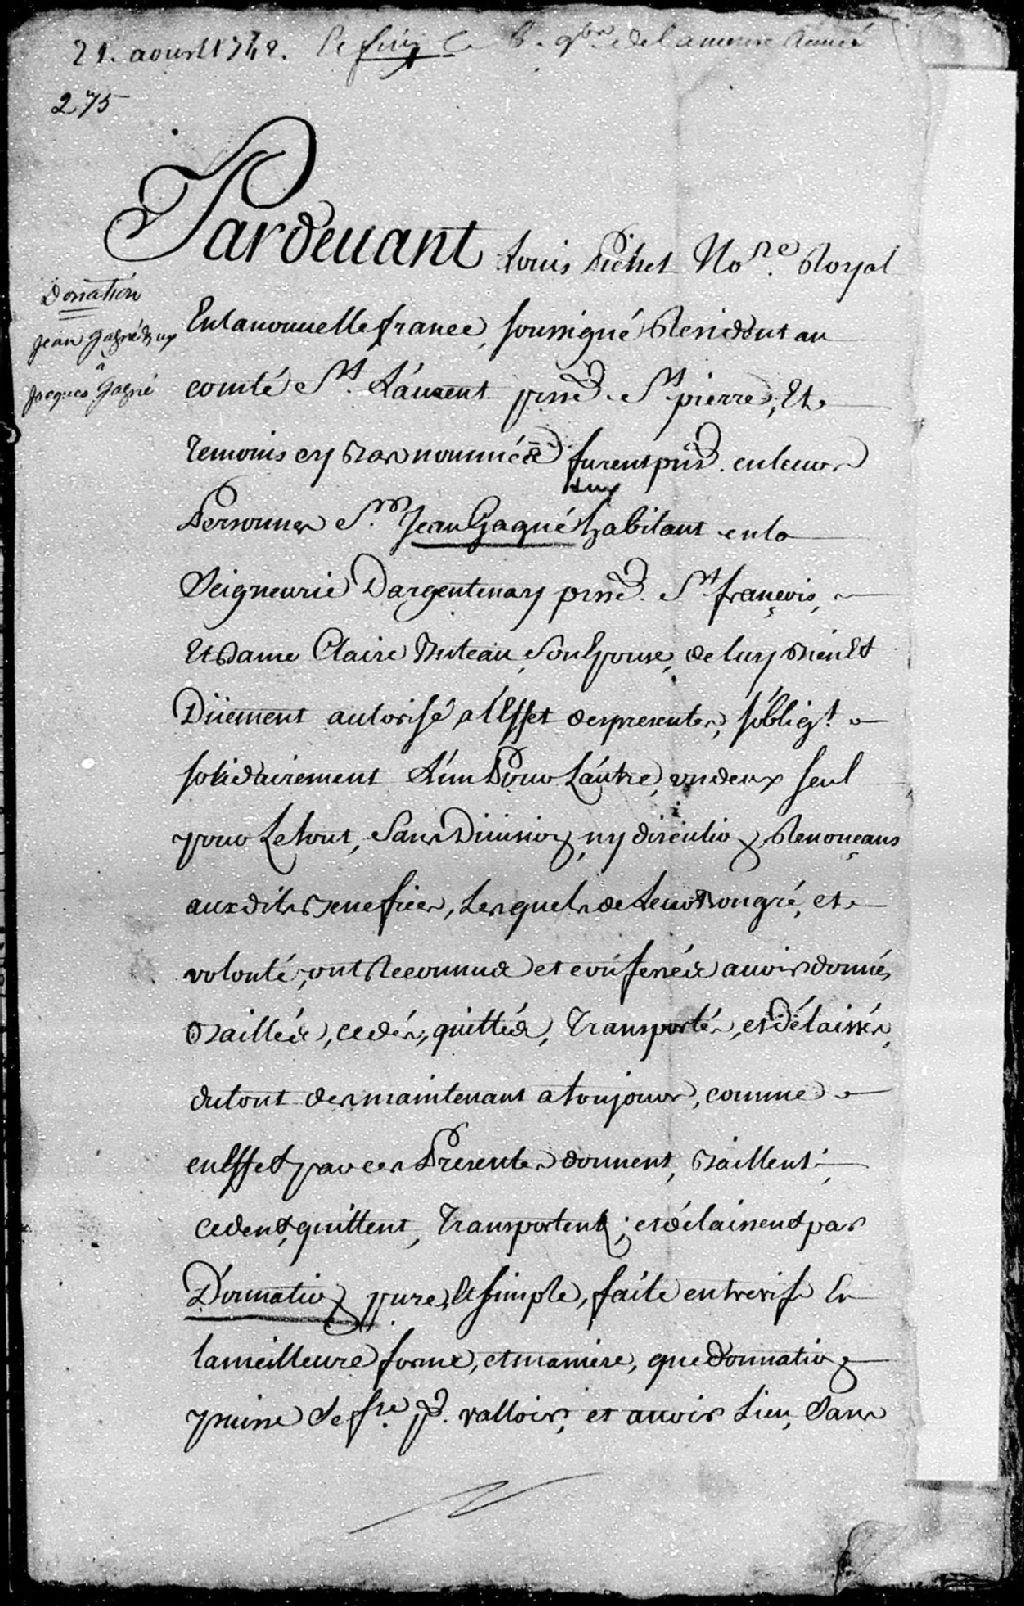 21. aoust 1748. de la mesme année
275
Pardeuant Louis Pichet No.re Royal
Donation
Jean Gagné
a
Jacques Gagné
En la nouuelle france, soussigné Residant au
comté St. Laurent p.sse St pierre, Et
Temoins cy bas nommés furent pns. en leurs
Personnes Sr. Jean Gagné habitant en la
Seigneurie Dargentenay p.sse St françois,
Et Dame Claire Buteau, Son Epouse, de luy bien Et
Düement autorisé a l'Effet des presentes, s'oblig.t
solidairement L'un Pour L'autre, un deux seul
pour Le tout, Sans Diuision, ny discution, Renonçans
aux dits benefices, Lesquels de Leur bon gré, et
volonté, ont Reconnus et confessés auoir donné,
Baillés, cedés, quittés, Transportés, et Délaissés,
du tout des maintenant a toujours, comme
en Effet par ces Presentes donnent, baillent,
cedent, quittent, Transportent, et délaissent par
Donnation pure, Et simple, faite entrevifs En
la meilleure forme, et maniere, que donnation
puisse Se f.re p. valloir, et auoir Lieu, Sans